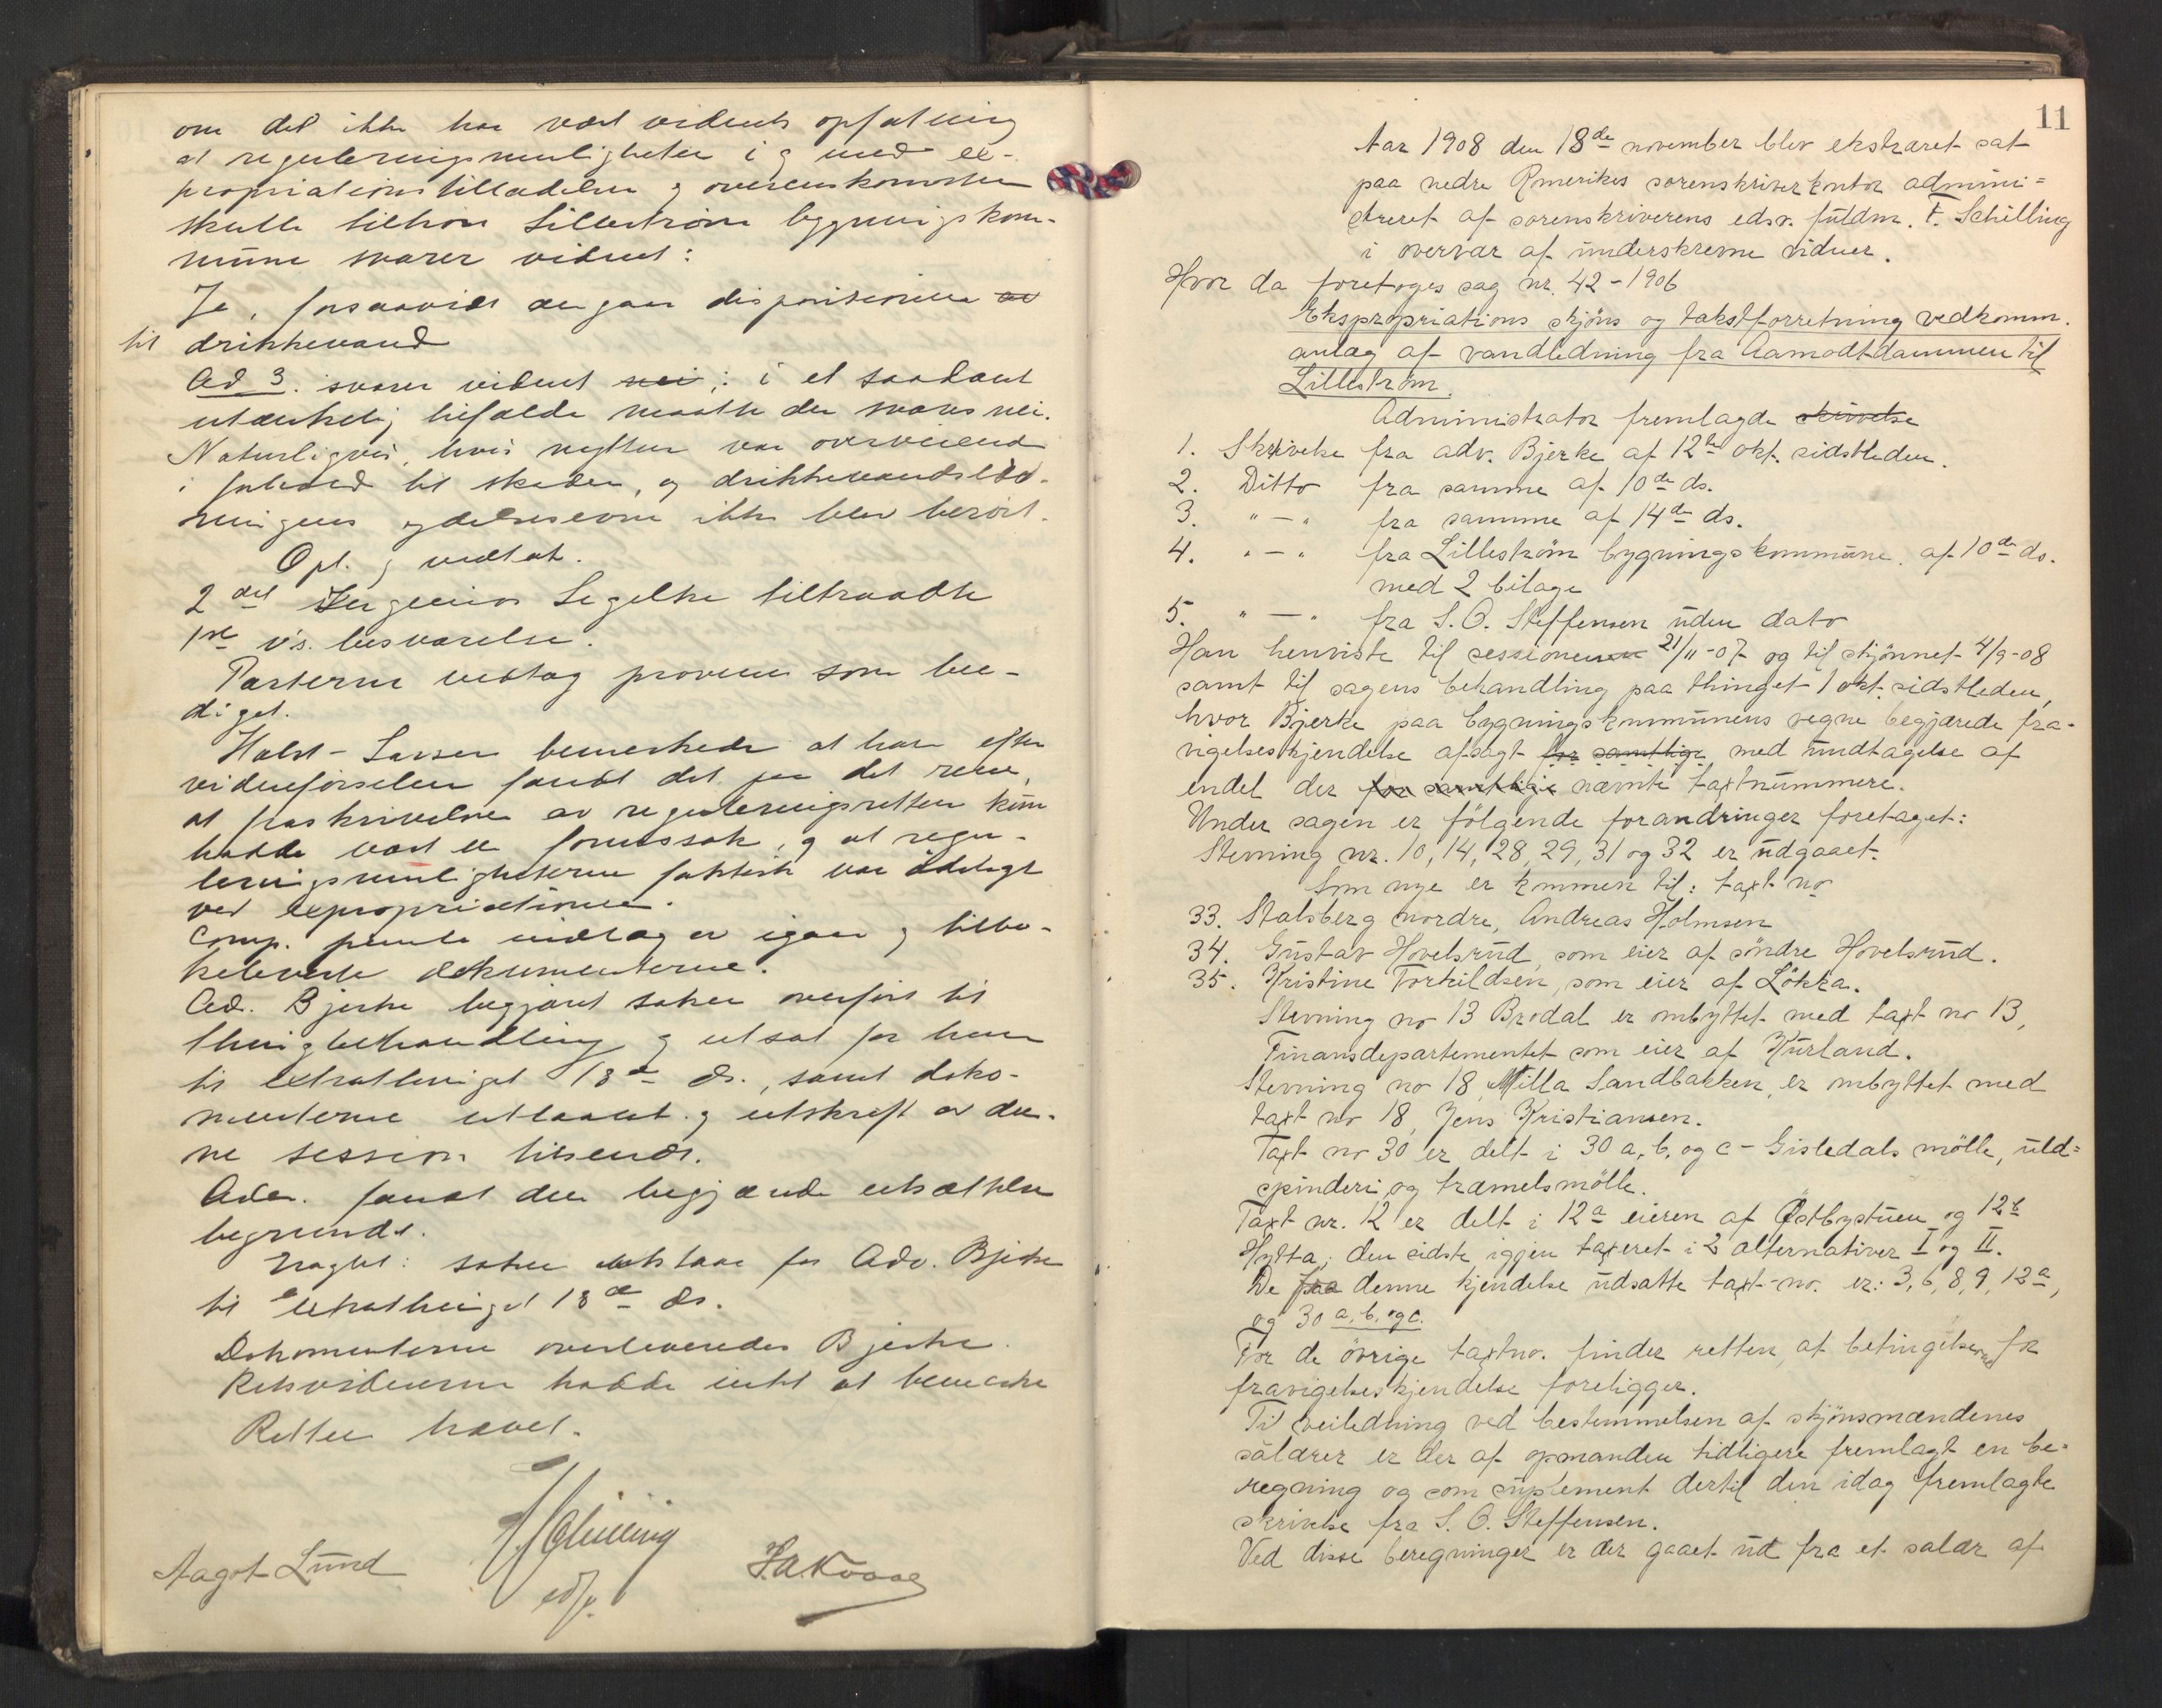 om det ikke har vært vidnets opfatning
at reguleringsmuligheten i og med ex-
propriationstilladelsen og overenskomsten
skulle tilhøre Lillestrøm bygningskom-
mune svarer vidnet:
Ja, forsaavidt angaar dispositionen av
til drikkevand
Ad 3. svarer vidnet nei: i et saadant
utænkelig tilfælde maatte der svares nei.
Naturligvis, hvis nytten var overveiende
i forhold til skaden, og drikkevandsled-
ningens ydelsesevne ikke blev berørt.
Opl. og vedtat.
2det Ingeniør Segelke tiltraadte
1ste v's. besvarelse.
Parterne vedtog prøvene som bee-
diget.
Holst-Larsen bemerkede at han efter
vidneførselen fandt det paa det rene,
at fraskrivelsen av reguleringsretten kun
hadde vært en formsak, og at regu-
leringsmulighetene faktisk var ødelagt
ved expropriationen.
Comp. indlæg av igaar og tilba-
keleverte dokumenterne.
Ad. Bjerke begjæret saken overført til
thingbehandling og utsat for ham
til extrathinget 18de ds., samt doku-
menterne utlaant og utskrift av den-
ne session tilsendt.
Adm. fandt den begjærede utsættelse
begrundet.
saken utstaar for Adv. Bjerke
til extrathinget 18de ds.
Dokumenterne overleveredes Bjerke.
Retsvidnerne hadde intet at bemerke
Retten hævet.
Aagot Lund
F Schilling
edf.
H.A.Kvaae
11
Aar 1908 den 18de november blev ekstraret sat
paa nedre Romerikes sorenskriverkontor admini=
streret af sorenskriverens edsv. fuldm. F. Schilling
i overvær af underskrevne vidner.
Hvor da foretoges sag nr. 42-1906
Ekspropriations skjøns og takstforretning vedkomm.
anlæg af vandledning fra Aamodtdammen til
Lillestrøm.
Administrator fremlagde skrivelse
1. Skrivelse fra adv. Bjerke af 12te okt. sidstleden.
2. Ditto fra samme af 10de ds.
3. " — " fra samme af 14de ds.
4. " — " fra Lillestrøm bygningskommune. af 10de ds.
med 2 bilage
5. " — " fra S. O. Steffensen uden dato
Han henviste til sessionen 21/11-07 og til skjønnet 4/9-08
samt til sagens behandling paa thinget 1 okt. sidstleden,
hvor Bjerke paa bygningskommunens vegne begjærede fra-
vigelseskjendelse afsagt for samtlige med undtagelse af
endel der for samtlige nævnte taxtnummere.
Under sagen er følgende forandringer foretaget:
Stevning nr. 10, 14, 28, 29, 31 og 32 er udgaaet.
Som nye er kommen til: taxt no
33. Stalsberg nordre, Andreas Holmsen
34. Gustav Hovelsrud, som eier af søndre Hovelsrud.
35. Kristine Torkildsen, som eier af Løkka.
Stevning no 13 Brodal er ombyttet med taxt no 13,
Finansdepartementet som eier af Kurland.
Stevning no 18, Milla Sandbakken, er ombyttet med
taxt no 18, Jens Kristiansen.
Taxt no 30 er delt i 30 a, b, og c - Gisledals mølle, uld=
spinderi og træmelsmølle.
Taxt nr. 12 er delt i 12a eieren af Østbystuen og 12b
Hytta, den sidste igjen taxeret i 2 alternativer I og II.
De paa denne kjendelse udsatte taxt-no. er: 3, 6, 8, 9, 12a,
og 30 a, b, og c.
For de øvrige taxtno. finder retten, at betingelserne for
fravigelseskjendelse foreligger.
Til veiledning ved bestemmelsen af skjønsmændenes
salærer er der af opmanden tidligere fremlagt en be-
regning og som suplement dertil den idag fremlagte
skrivelse fra S. O. Steffensen.
Ved disse beregninger er der gaaet ud fra et salær af